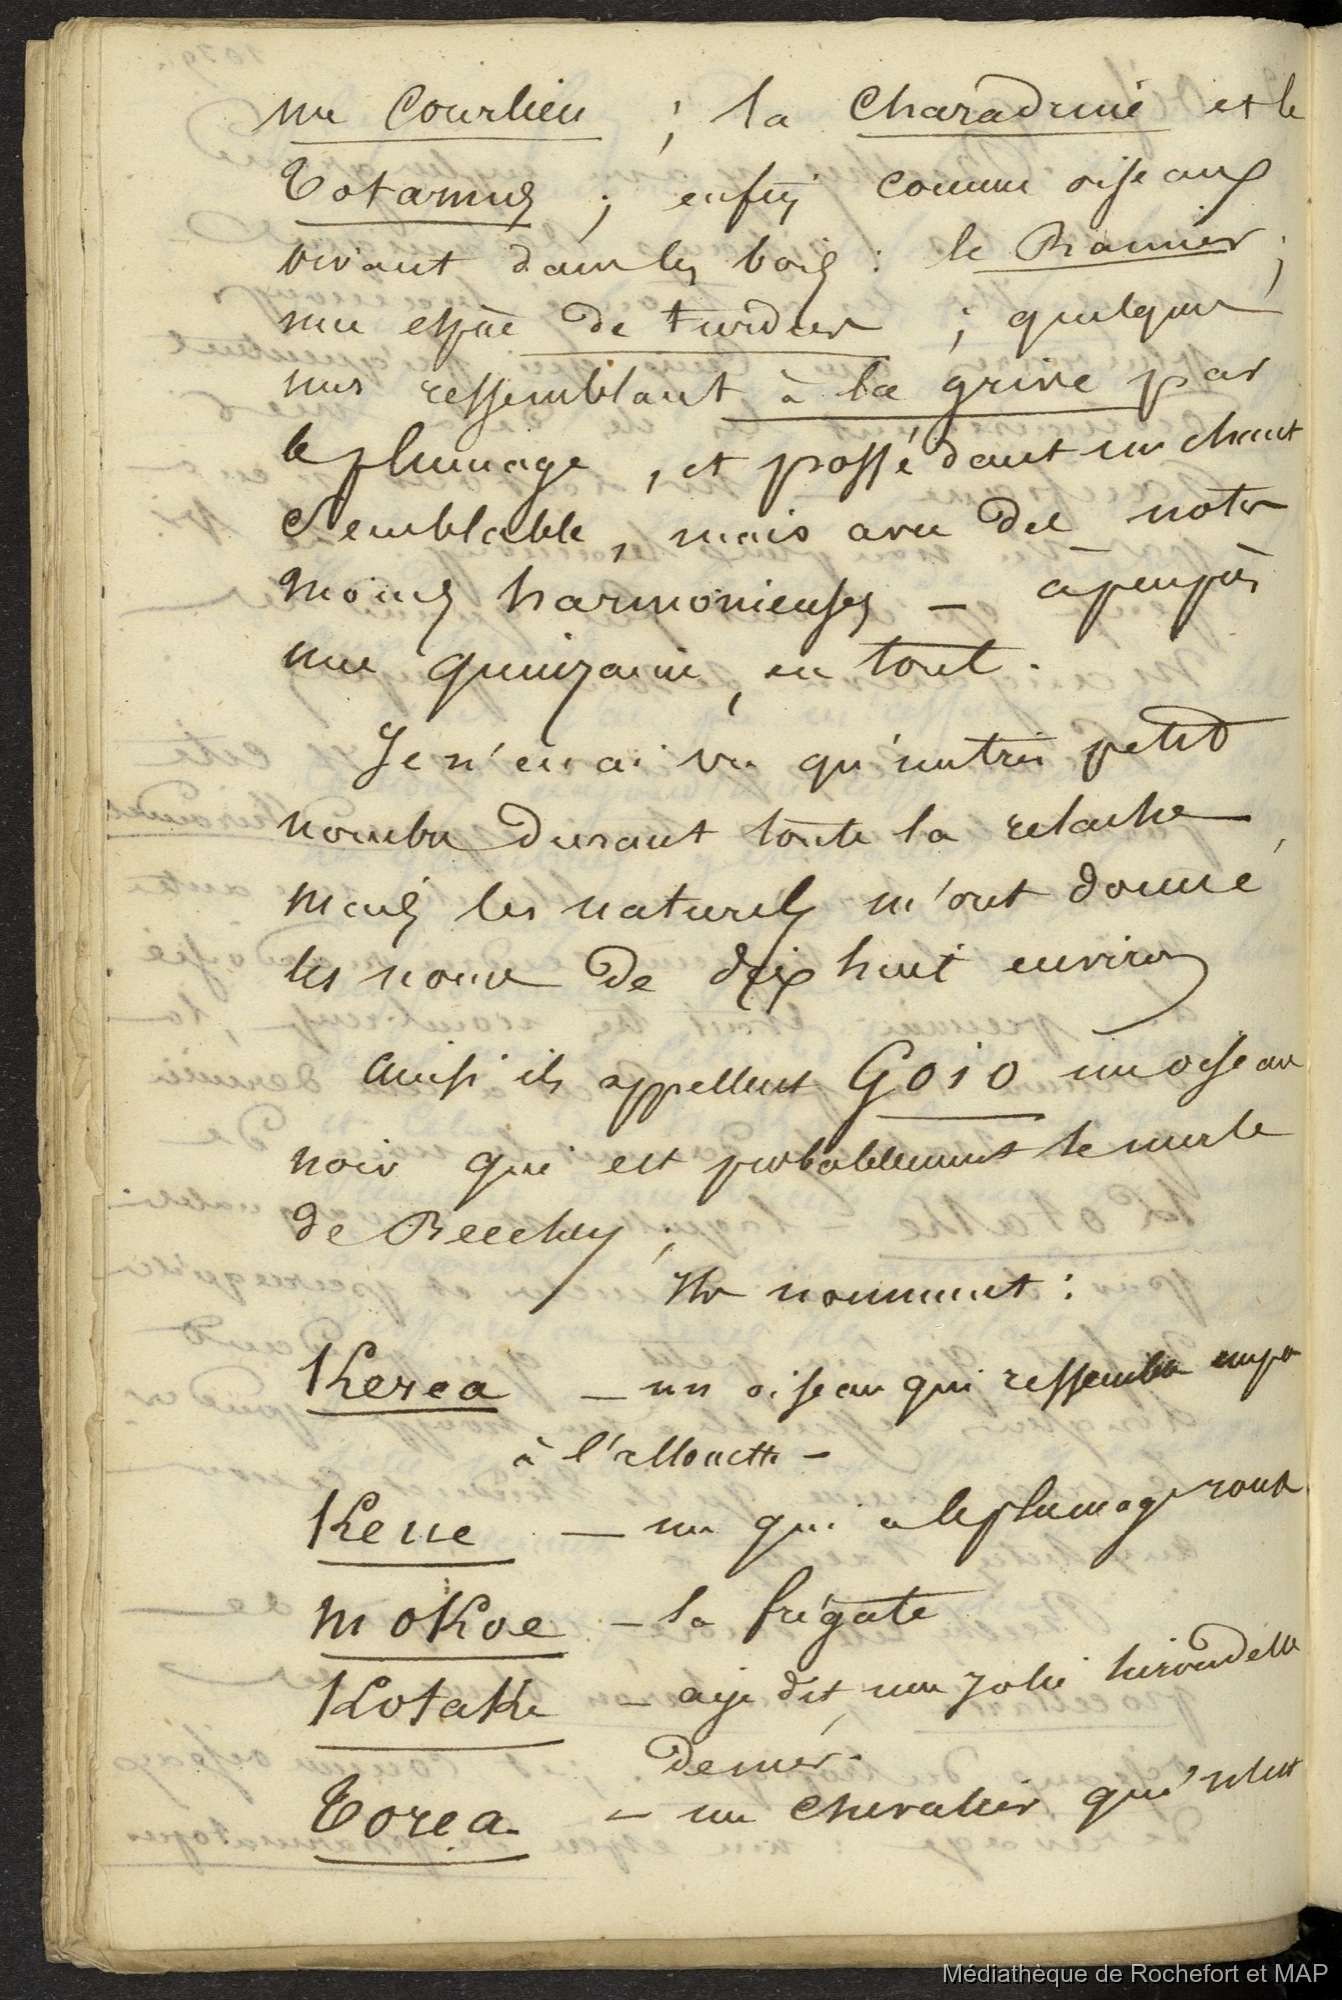 un Courlieu ; la Charadrine et le
Totamus ; enfin comme oiseaux
vivant dans les bois : le Ramier ;
une espèce de turdus ; quelques
uns ressemblant à la grive par
le plumage, et possédant un chant
semblable, mais avec des notes
moins harmonieuses – à peu près
une quinzaine, en tout.
Je n'en ai vu qu'un très petit
nombre durant toute la relache,
mais les naturels m'ont donné
les noms de dix huit environ
Ainsi ils appellent Goio un oiseau
noir qui est probablement le merle
de Beechey ;
Ils nomment :
Kerea – un oiseau qui ressemble un peu
à l'allouette –
Keue – un qui a le plumage roux
mokoe – la frégate
Kotake – ai je dit, une jolie hirondelle
de mer.
Torea – un chevalier qui n'est
Médiathèque de Rochefort et MAP